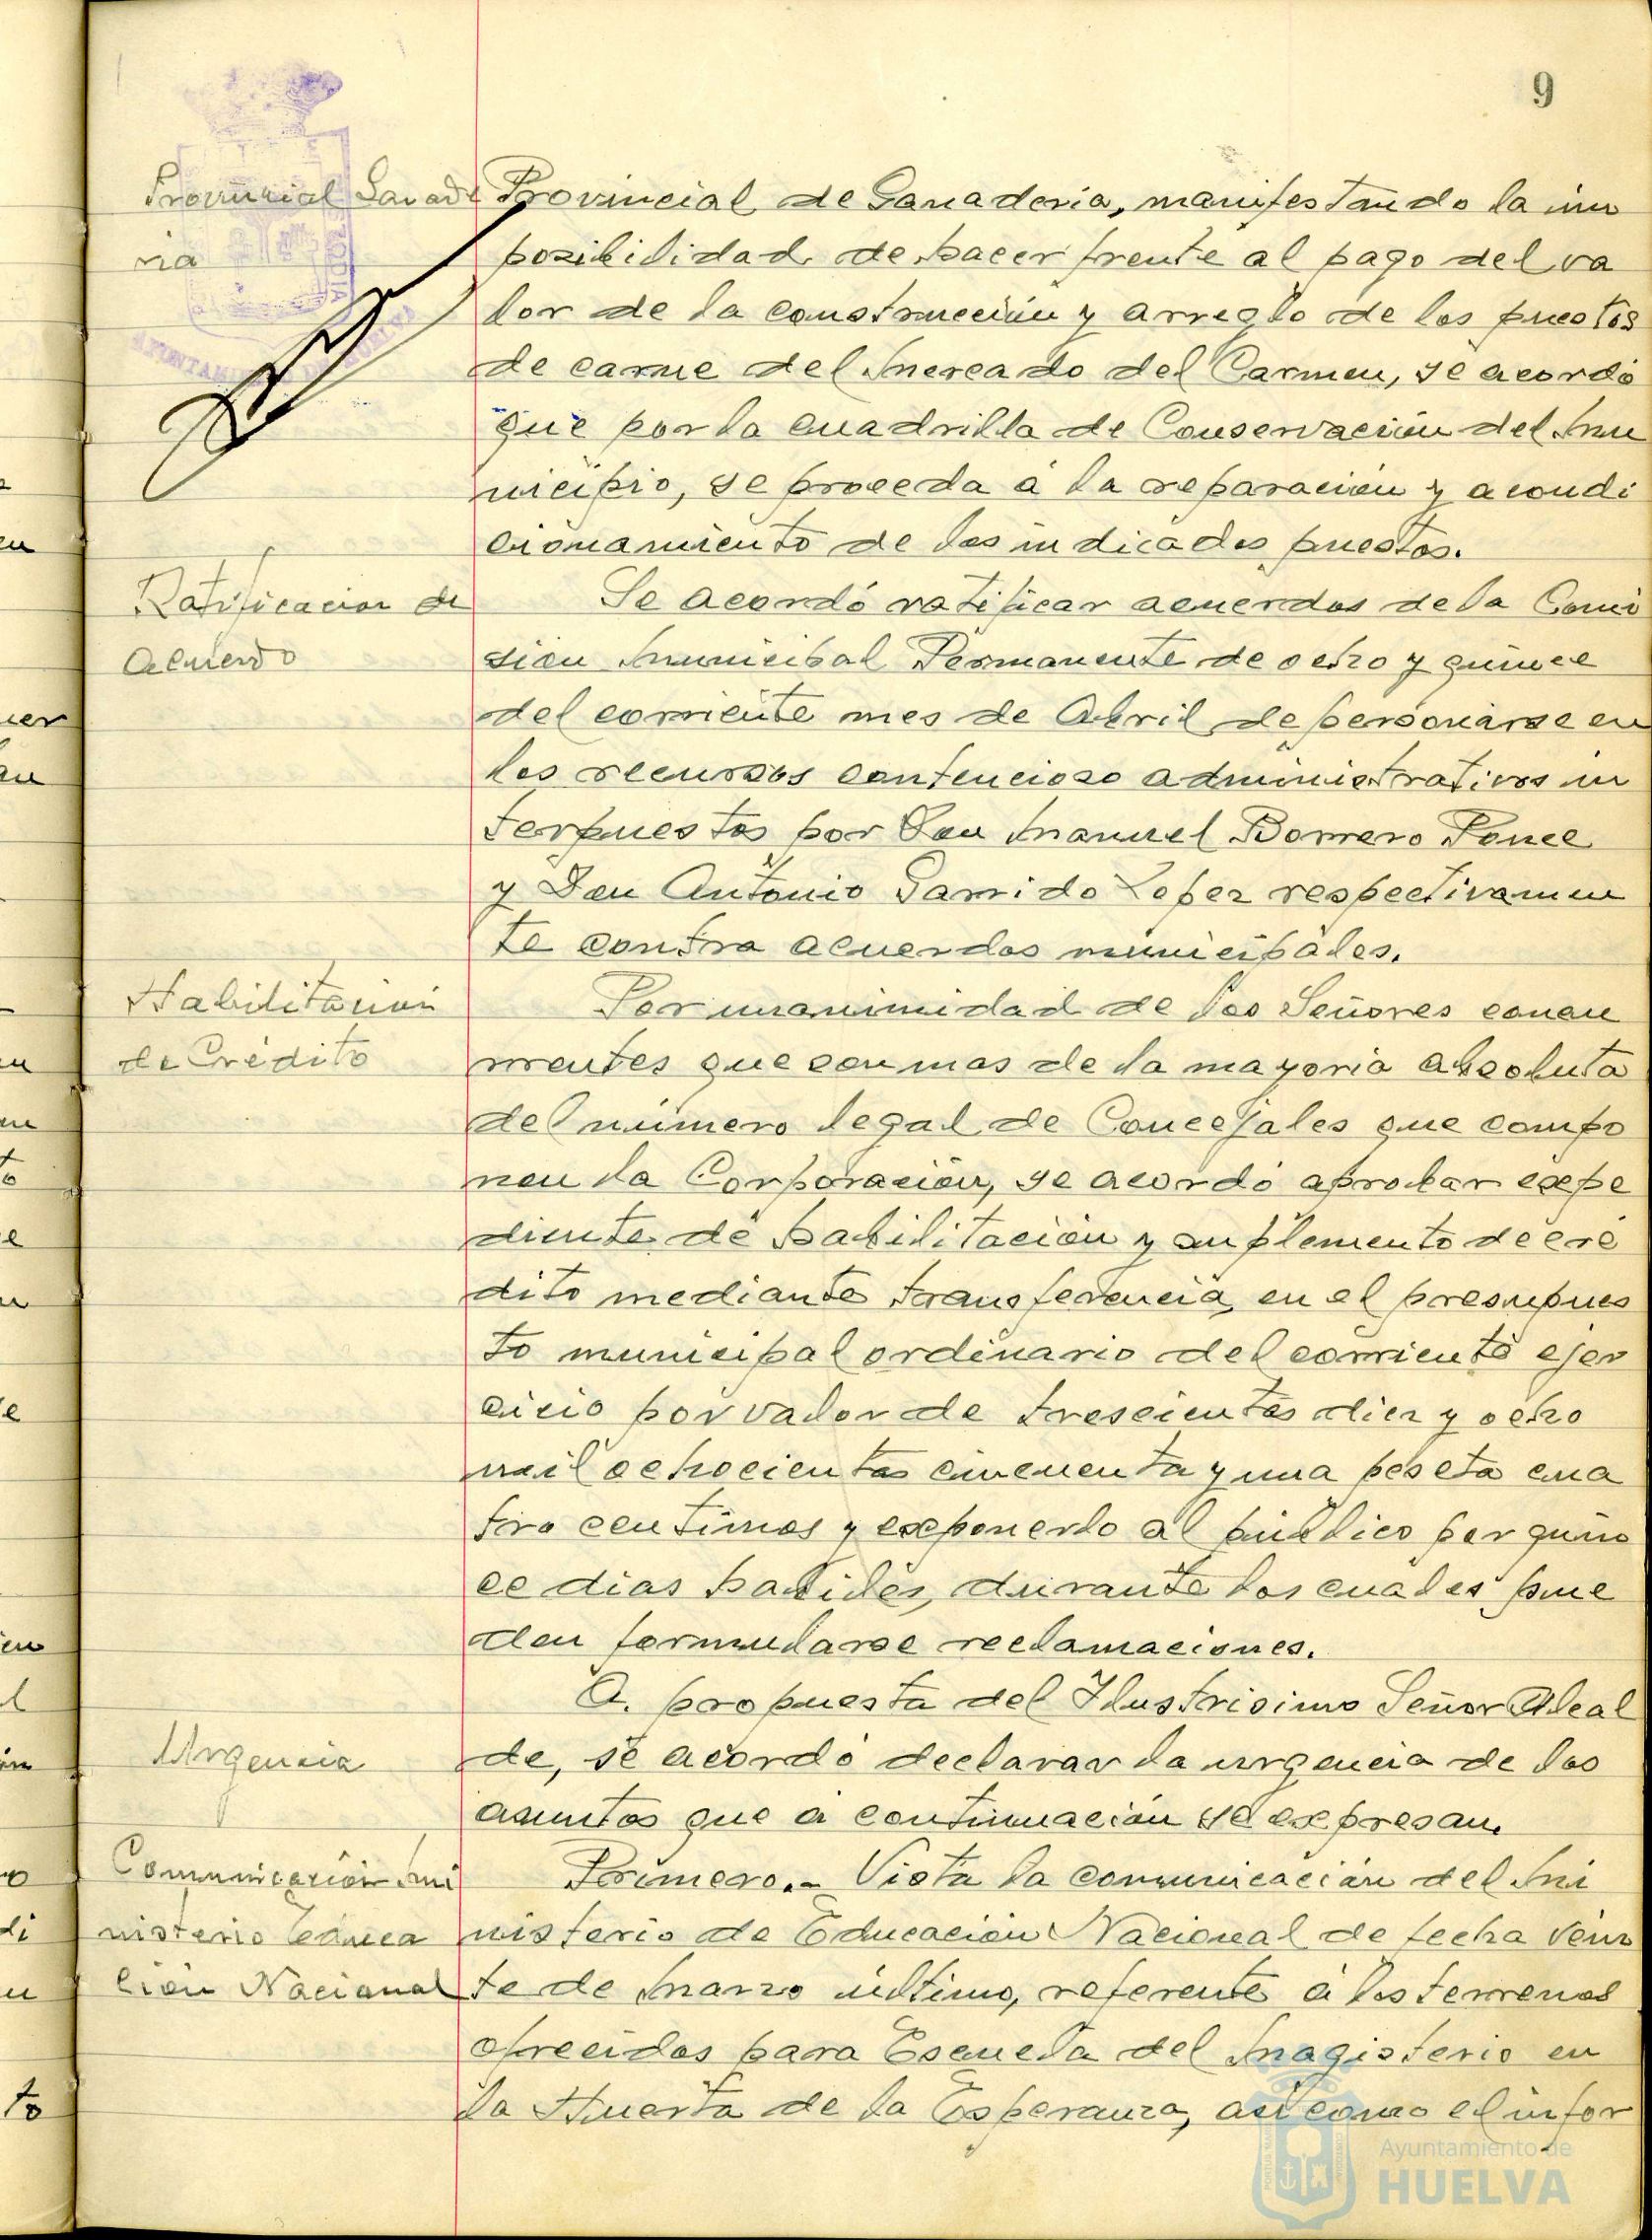 9
Provincial Ganade
ria
Provincial de Ganaderia, manifestando la im
posibilidad de hacer frente al pago del va
lor de la construcción y arreglo de los puestos
de carne del Mercado del Carmen, se acordó
que por la cuadrilla de Conservación del Mu
nicipio, se proceda á la reparación y acondi
cionamiento de los indicados puestos.
Ratificacion de
Acuerdo
Se acordó ratificar acuerdos de la Comi
sion Municipal Permanente de ocho y quince
del corriente mes de Abril de personarse en
los recursos contencioso administrativos in
terpuestos por Don Manuel Borrero Ponce
y Don Antonio Garrido Lopez respectivamen
te contra acuerdos municipales.
Habilitación
de Crédito
Por unanimidad de los Señores concu
rrentes que son mas de la mayoria absoluta
del número legal de Concejales que compo
nen la Corporación, se acordó aprobar expe
diente de habilitación y suplemento de cré
dito mediante transferencia, en el presupues
to municipal ordinario del corriente ejer
cicio por valor de trescientas diez y ocho
mil ochocientas cincuenta y una peseta cua
tro centimos y exponerlo al público por quin
ce dias habiles, durante los cuales pue
den formularse reclamaciones.
Urgencia
A propuesta del Ilustrisimo Señor Alcal
de, se acordó declarar la urgencia de los
asuntos que á continuación se expresan.
Comunicación Mi
nisterio Educa
ción Nacional
Primero.- Vista la comunicación del Mi
nisterio de Educación Nacional de fecha vein
te de Marzo último, referente á los terrenos
ofrecidos para Escuela del Magisterio en
la Huerta de la Esperanza, asi como el infor
Ayuntamiento de
HUELVA